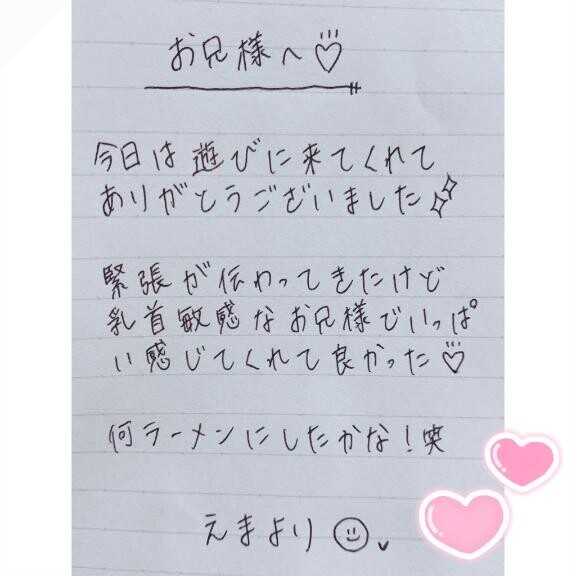 お兄様へ♡
今日は遊びに来てくれて
ありがとうございました
緊張が伝わってきたけど
乳首敏感なお兄様でいっぱ
い感じてくれて良かった♡
何ラーメンにしたかな！笑
えまより